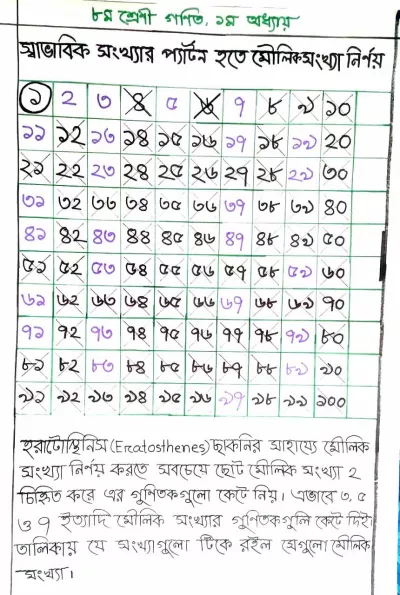 ৮ম শ্রেণী গণিত, ১ম অধ্যায়
স্বাভাবিক সংখ্যার প্যার্টন হতে মৌলিকসংখ্যা নির্ণয়
১ ২ ৩ ৪ ৫ ৬ ৭ ৮ ৯ ১০
১১ ১২ ১৩ ১৪ ১৫ ১৬ ১৭ ১৮ ১৯ ২০
২১ ২২ ২৩ ২৪ ২৫ ২৬ ২৭ ২৮ ২৯ ৩০
৩১ ৩২ ৩৩ ৩৪ ৩৫ ৩৬ ৩৭ ৩৮ ৩৯ ৪০
৪১ ৪২ ৪৩ ৪৪ ৪৫ ৪৬ ৪৭ ৪৮ ৪৯ ৫০
৫১ ৫২ ৫৩ ৫৪ ৫৫ ৫৬ ৫৭ ৫৮ ৫৯ ৬০
৬১ ৬২ ৬৩ ৬৪ ৬৫ ৬৬ ৬৭ ৬৮ ৬৯ ৭০
৭১ ৭২ ৭৩ ৭৪ ৭৫ ৭৬ ৭৭ ৭৮ ৭৯ ৮০
৮১ ৮২ ৮৩ ৮৪ ৮৫ ৮৬ ৮৭ ৮৮ ৮৯ ৯০
৯১ ৯২ ৯৩ ৯৪ ৯৫ ৯৬ ৯৭ ৯৮ ৯৯ ১০০
ইরাটোস্থিনিস (Eratosthenes) ছাকনির সাহায্যে মৌলিক
সংখ্যা নির্ণয় করতে সবচেয়ে ছোট মৌলিক সংখ্যা ২
চিহ্নিত করে এর গুণিতকগুলো কেটে নিয়। এভাবে ৩, ৫
ও ৭ ইত্যাদি মৌলিক সংখ্যার গুণিতকগুলি কেটে দিই।
তালিকায় যে সংখ্যাগুলো টিকে রইল সেগুলো মৌলিক
সংখ্যা।